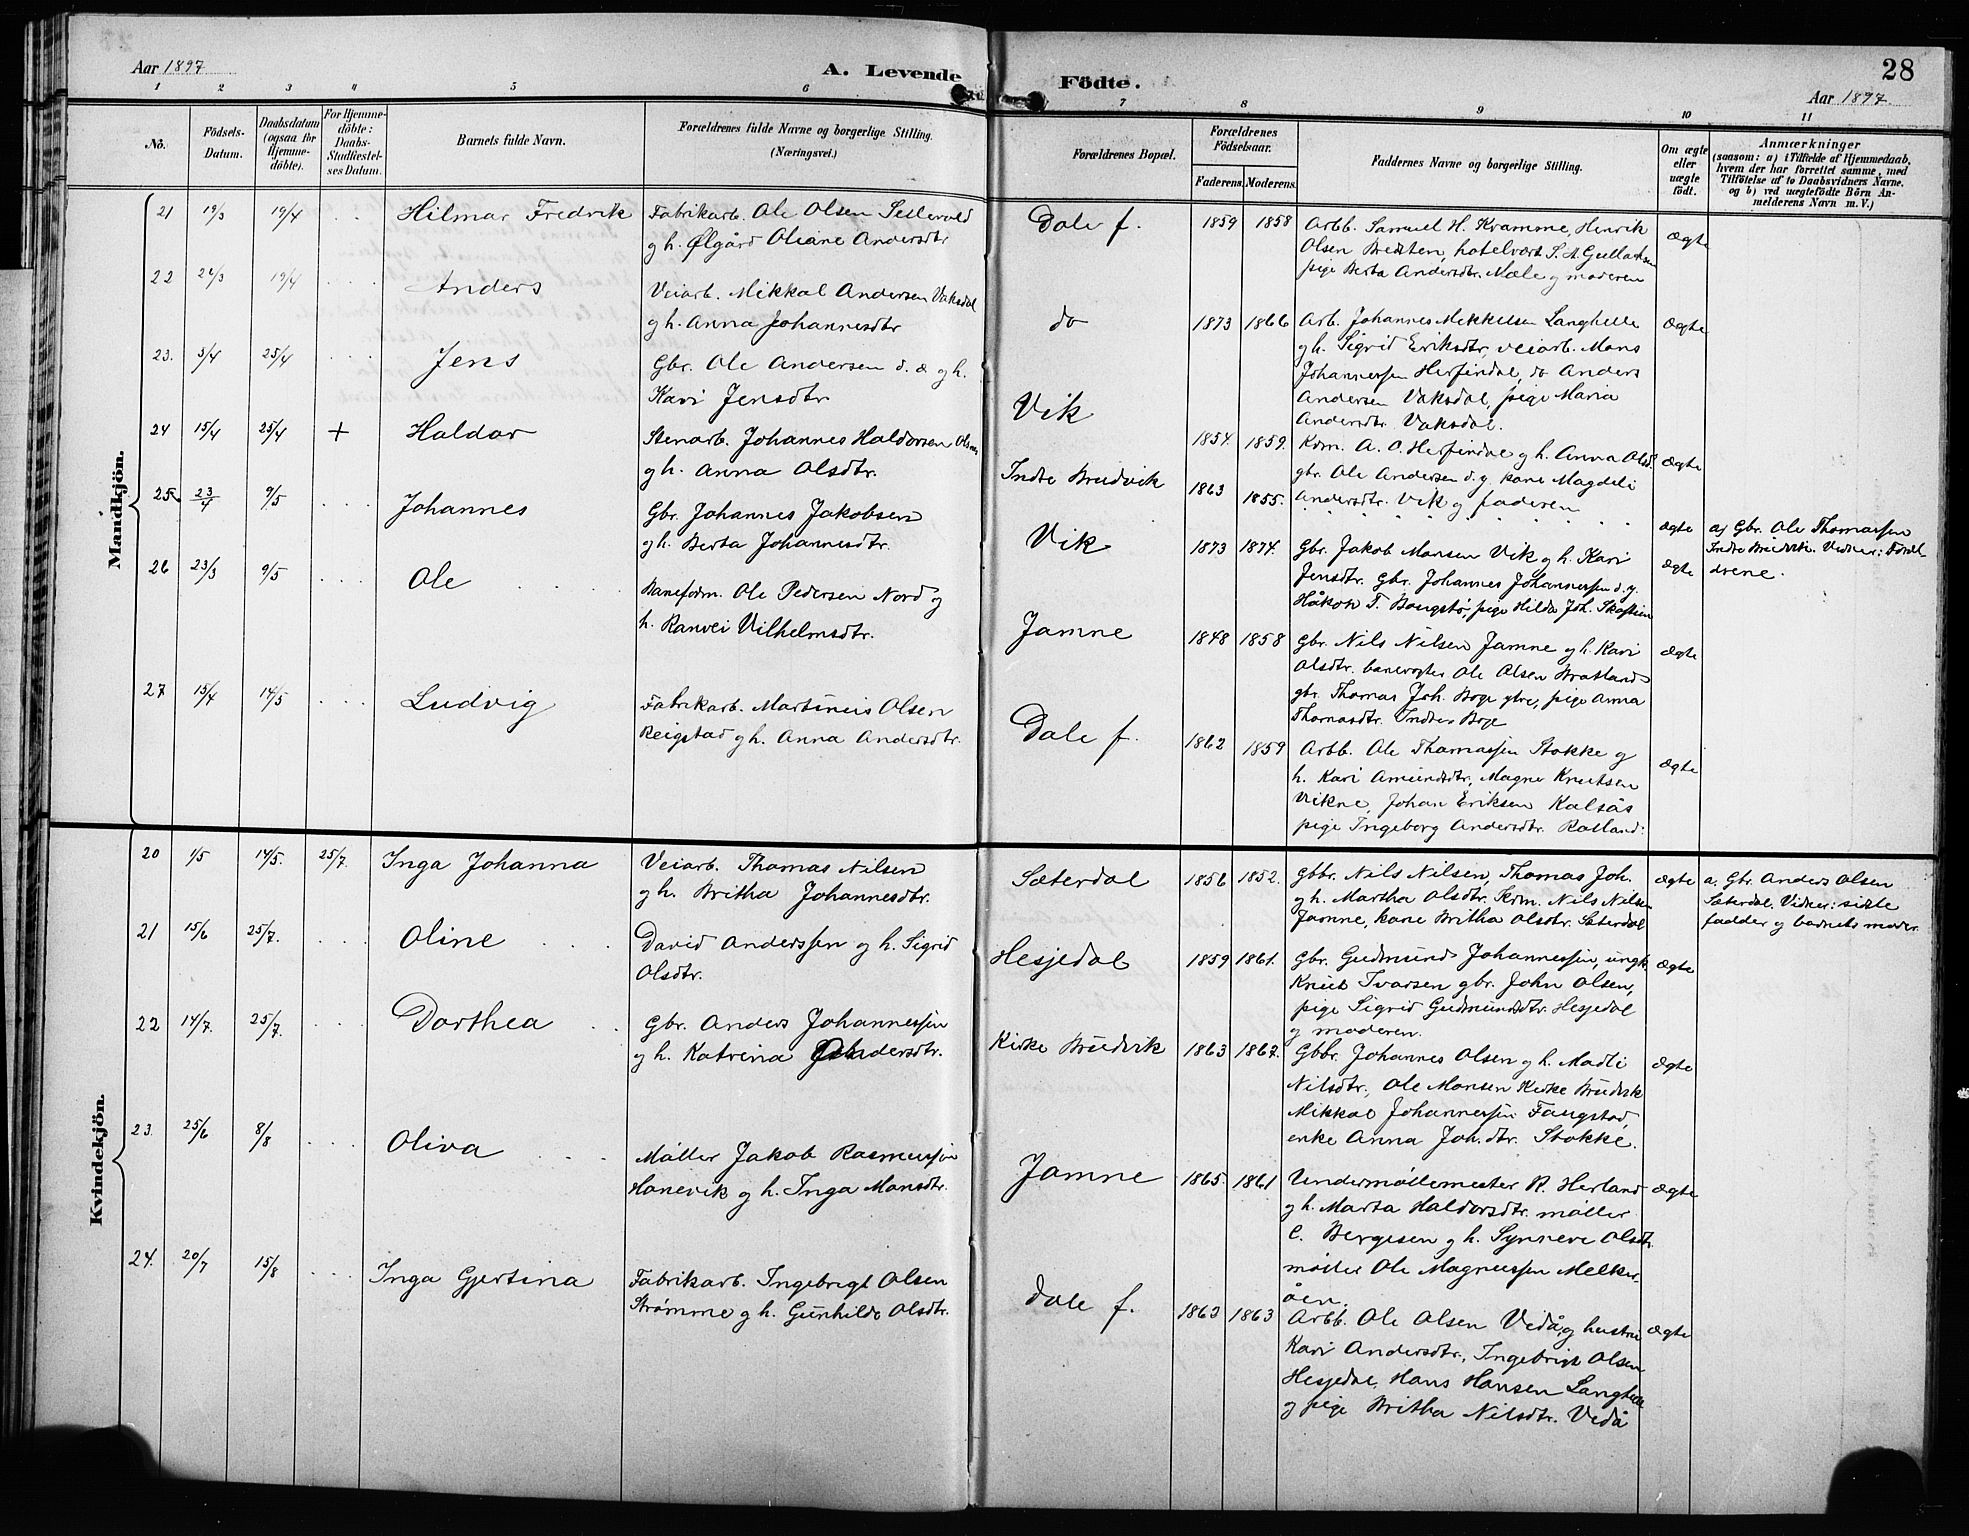 Aar 1897
A. Levende
1 2 3 4 5 6
No.
Födsels-
Datum.
Daabsdatum
(ogsaa for
Hjemme-
döbte).
For Hjemme-
döbte:
Daabs-
Stadfæstel-
ses Datum.
Barnets fulde Navn.
Forældrenes fulde Navne og borgerlige Stilling.
(Næringsvei.)
Mandkjön.
21 19/3 19/4 . . Hilmar Fredrik Fabrikarb. Ole Olsen Sellevold
og h. Ølgård Oliane Andersdtr
22 24/3 19/4 . . . . Anders Veiarb. Mikkal Andersen Vaksdal
og h. Anna Johannesdtr
23. 3/4 25/4 . . . Jens Gbr. Ole Andersen d. æ og h.
Kari Jensdtr
24 15/4 25/4 + Haldor Stenarb. Johannes Haldorsen
og h. Anna Olsdtr.
25. 23/4 9/5 . . . Johannes Gbr. Johannes Jakobsen
og h. Berta Johannesdtr.
26 23/3 9/5 . . . Ole Baneform. Ole Pedersen Nord og
h. Ranvei Vilhelmsdtr.
27 15/4 14/5 . . . Ludvig Fabrikarb. Martineus Olsen
Reigstad og h. Anna Andersdtr.
Kvindekjön.
20 1/5 14/5. 25/7. Inga Johanna Veiarb. Thomas Nilsen
og h. Britha Johannesdtr.
21 15/6 25/7. . . . Oline David Anderssen og h. Sigrid
Olsdtr.
22 14/7. 25/7. . . . Dorthea Gbr. Anders Johannessen
og h. Katrina Andersdtr.
23. 25/6 8/8 . . . Oliva Møller Jakob Rasmussen
Hanevik og h. Inga Monsdtr.
24. 20/7 15/8 . . . Inga Gjertina Fabrikarb. Ingebrigt Olsen
Strømme og h. Gunhilde Olsdtr.
Födte.
28
Aar 1897.
7 8 9 10 11
Forældrenes Bopæl.
Forældrenes
Födselsaar.
Faderens. Moderens.
Faddernes Navne og borgerlige Stilling.
Om ægte
eller
uægte
födt.
Anmærkninger
(saasom: a) i Tilfælde af Hjemmedaab,
hvem der har forrettet samme, med
Tilföielse af to Daabsvidners Navne,
og b) ved uægtefödte Börn An-
melderens Navn m. V.)
Dale f. 1859 1858 Arbb. Samuel H. Kvamme, Henrik ægte
Olsen Bredsten, hotelvært S. A. Gullachsen
pige Berta Andersdtr. Mæle og moderen
do 1873 1866 Arb. Johannes Mikkelsen Langhelle ægte
og h. Sigrid Eriksdtr, veiarb. Mons
Johannessen Herfindal, do Anders
Andersen Vaksdal, pige Maria
Andersdtr. Vaksdal.
Vik 1854. 1859. Krm. A. O. Herfindal og h. Anna Olsd. ægte
gbr. Ole Andersen d. y. kone Magdeli
Andersdtr. Vik og faderen
Indre Brudvik 1863 1855. " " " " " ægte a) Gbr. Ole Thomassen
Indre Brudvik. Vidner: Foræl-
drene.
Vik 1873 1874. Gbr. Jakob Monsen Vik og h. Kari ægte
Jensdtr. Gbr. Johannes Johannessen d. y.
Håkon T. Bougstø, pige Hilda Joh.
Jamne 1848 1858 Gbr. Nils Nilsen Jamne og h. Kari ægte
Olsdtr. banevogter Ole Olsen Bratland
gbr. Thomas Joh. Boge ytre, pige Anna
Thomasdtr. Indre Boge
Dale f. 1862 1859 Arbb. Ole Thomassen Stokke og ægte
h. Kari Amundsdtr, Magne Knutsen
Vikne, Johan Eriksen Kalsås
pige Ingeborg Andersdtr. Rolland.
Sæterdal 1856 1852. Gbbr. Nils Nilsen, Thomas Joh. ægte a. Gbr. Anders Olsen
og h. Martha Olsdtr. Krm. Nils Nilsen Sæterdal. Vidner: sidste
Jamne, kone Britha Olsdtr. Sæterdal fadder og barnets moder.
Hesjedal 1859 1861. Gbr. Gudmund Johannessen, ungk. ægte
Knut Ivarsen gbr. John Olsen,
pige Sigrid Gudmundsdtr. Hesjedal
og moderen.
Kirke Brudvik 1863 1867. Gbbr. Johannes Olsen og h. Madli ægte
Nilsdtr., Ole Monsen Kirke Brudvik
Mikkal Johannessen Fougstad,
enke Anna Joh.dtr. Stokke.
Jamne 1865. 1861 Undermøllemester R. Herland ægte
og h. Marta Haldorsdtr. møller
C. Bergesen og h. Synneve Olsdtr.
møller Ole Magnussen Melker-
øen.
Dale f. 1863 1863 Arbb. Ole Olsen Vedå og hustru ægte
Kari Andersdtr., Ingebrigt Olsen
Hesjedal, Hans Hansen Langhelle
og pige Britha Nilsdtr. Vedå